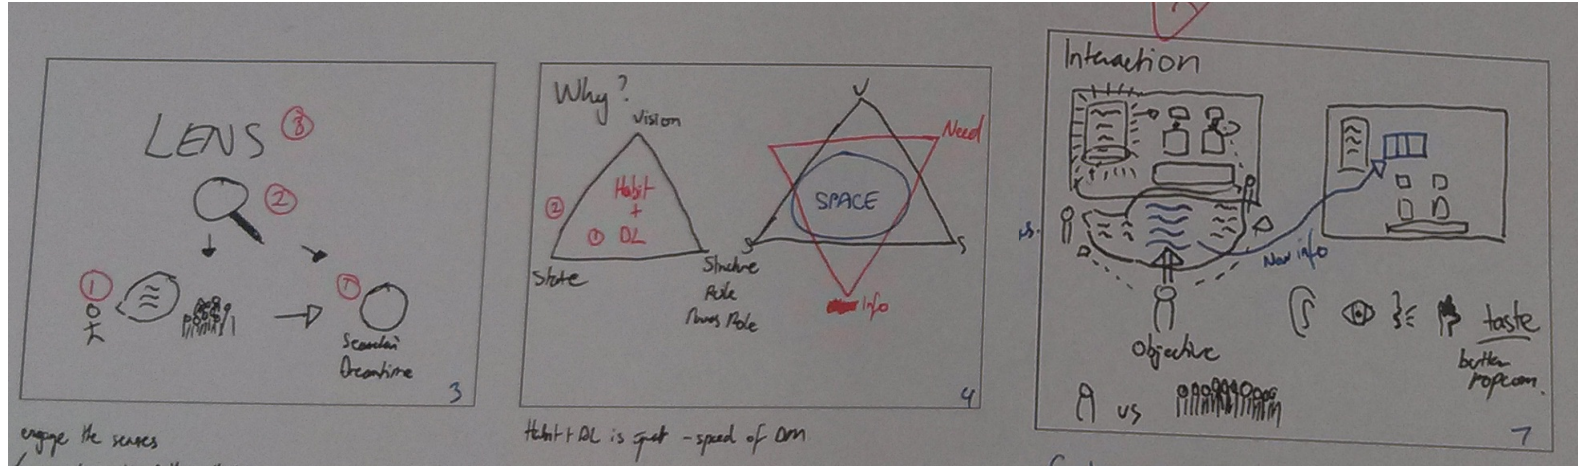 LENS 3
2
1
1
3
engage the senses
Why?
Vision
Habit
+
2
1 DL
State
Structure
Role
Role
V
Need
SPACE
S
S
Info
4
Habit + DL is - speed of DM
Interaction
vs.
New info
Objective
taste
butter
popcorn.
vs
7